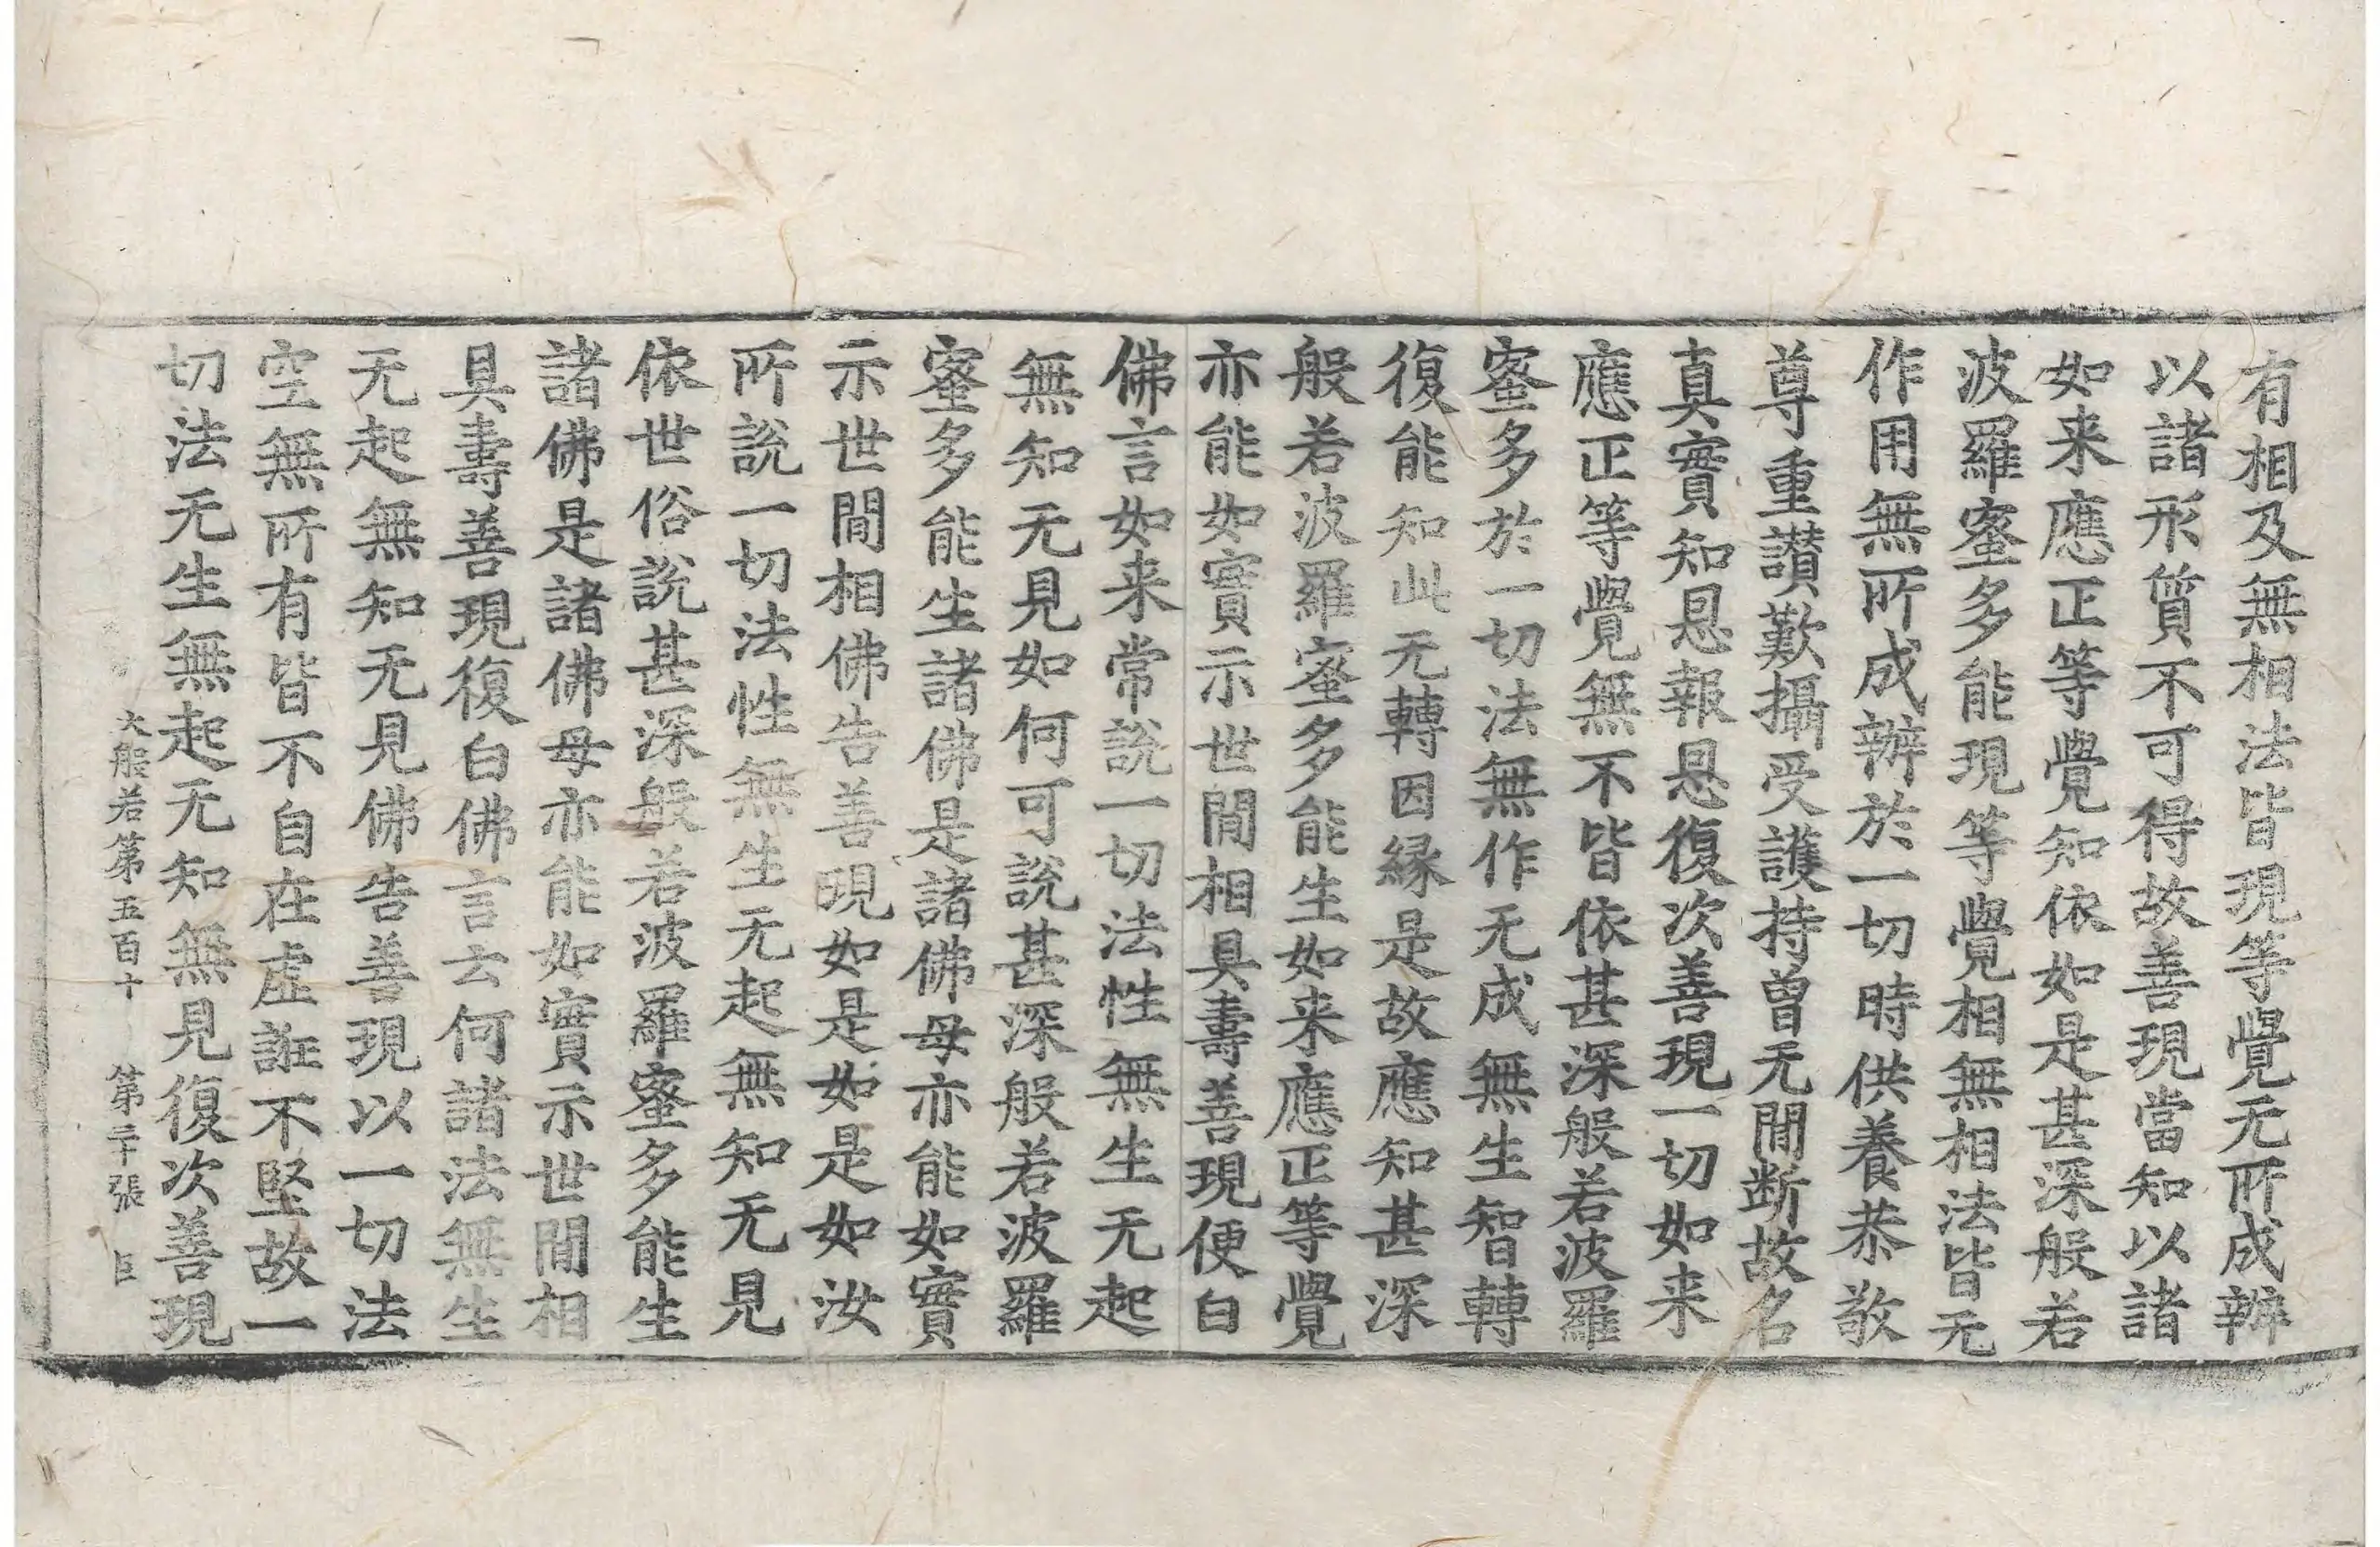 有相及無相法皆現等覺无所成辨
以諸形質不可得故善現當知以諸
如来應正等覺知依如是甚深般若
波羅蜜多能現等覺相無相法皆无
作用無所成辨於一切時供養恭敬
尊重讃歎攝受護持曾无閒断故名
真實知恩報恩復次善現一切如来
應正等覺無不皆依甚深般若波羅
蜜多於一切法無作无成無生智轉
復能知此无轉因縁是故應知甚深
般若波羅蜜多能生如来應正等覺
亦能如實示世閒相具壽善現便白
佛言如来常說一切法性無生无起
無知无見如何可說甚深般若波羅
蜜多能生諸佛是諸佛母亦能如實
示世閒相佛告善現如是如是如汝
所說一切法性無生无起無知无見
依世俗說甚深般若波羅蜜多能生
諸佛是諸佛母亦能如實示世閒相
具壽善現復白佛言云何諸法無生
无起無知无見佛告善現以一切法
空無所有皆不自在虛誑不堅故一
切法无生無起无知無見復次善現
大般若第五百十 第二十張 臣